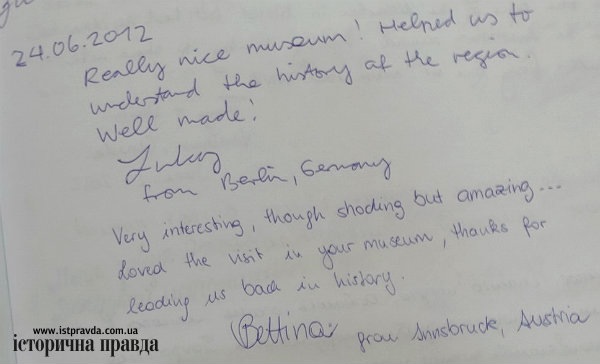 24.06.2012
Really nice museum! Helped us to
understand the history of the region.
Well made!
from Berlin, Germany
Very interesting, though shoding but amazing...
Loved the visit in your museum, thanks for
leading us back in history.
Bettina from Innsbruck, Austria
www.istpravda.com.ua
історична правда